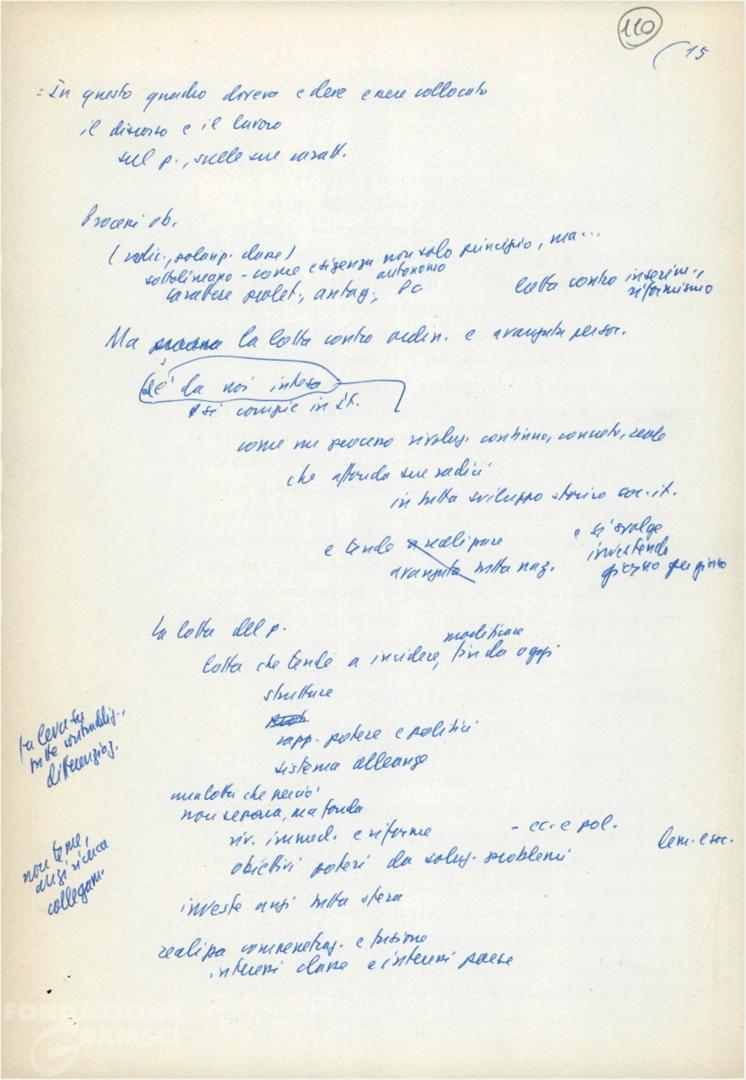 110
(15
= In questo quadro doveva e deve essere collocato
il discorso e il lavoro
sul p., sulle sue caratt.
Processi ob.
(radic., polariz. classe)
sottolineano - come esigenza non solo principio, ma...
autonomo
carattere prolet., antag., PC
lotta contro inserim.,
riformismo
Ma la lotta contro ordin. e avanzata
è da noi intesa
e si compie in It.
come un processo rivoluz. continuo, concreto, reale
che affonda sue radici
in tutto sviluppo storico soc. it.
e tende a realizzare
avanzata tutta naz.
e si svolge
investendo
giorno per giorno
La lotta del p.
modificare
lotta che tende a incidere, fin da oggi
strutture
rapp. potere e politici
sistema alleanze
fa leva su
tutte contraddiz.,
differenziaz.
una lotta che perciò
non separa, ma fonda
riv. immed. e riforme
- ec. e pol.
obiettivi potere da soluz. problemi
non teme,
anzi ricerca
collegam.
investe anzi tutta sfera
realizza compenetraz. e fusione
interessi classe e interessi paese
FONDAZIONE
GRAMSCI